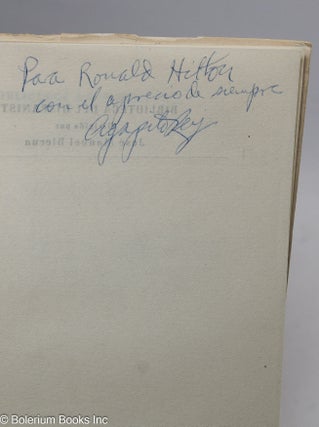 Para Ronald Hilton
con el aprecio de siempre
Agapito Rey
BIBLIOTECA DEL HISPANISTA
José Manuel Blecua
© Bolerium Books Inc